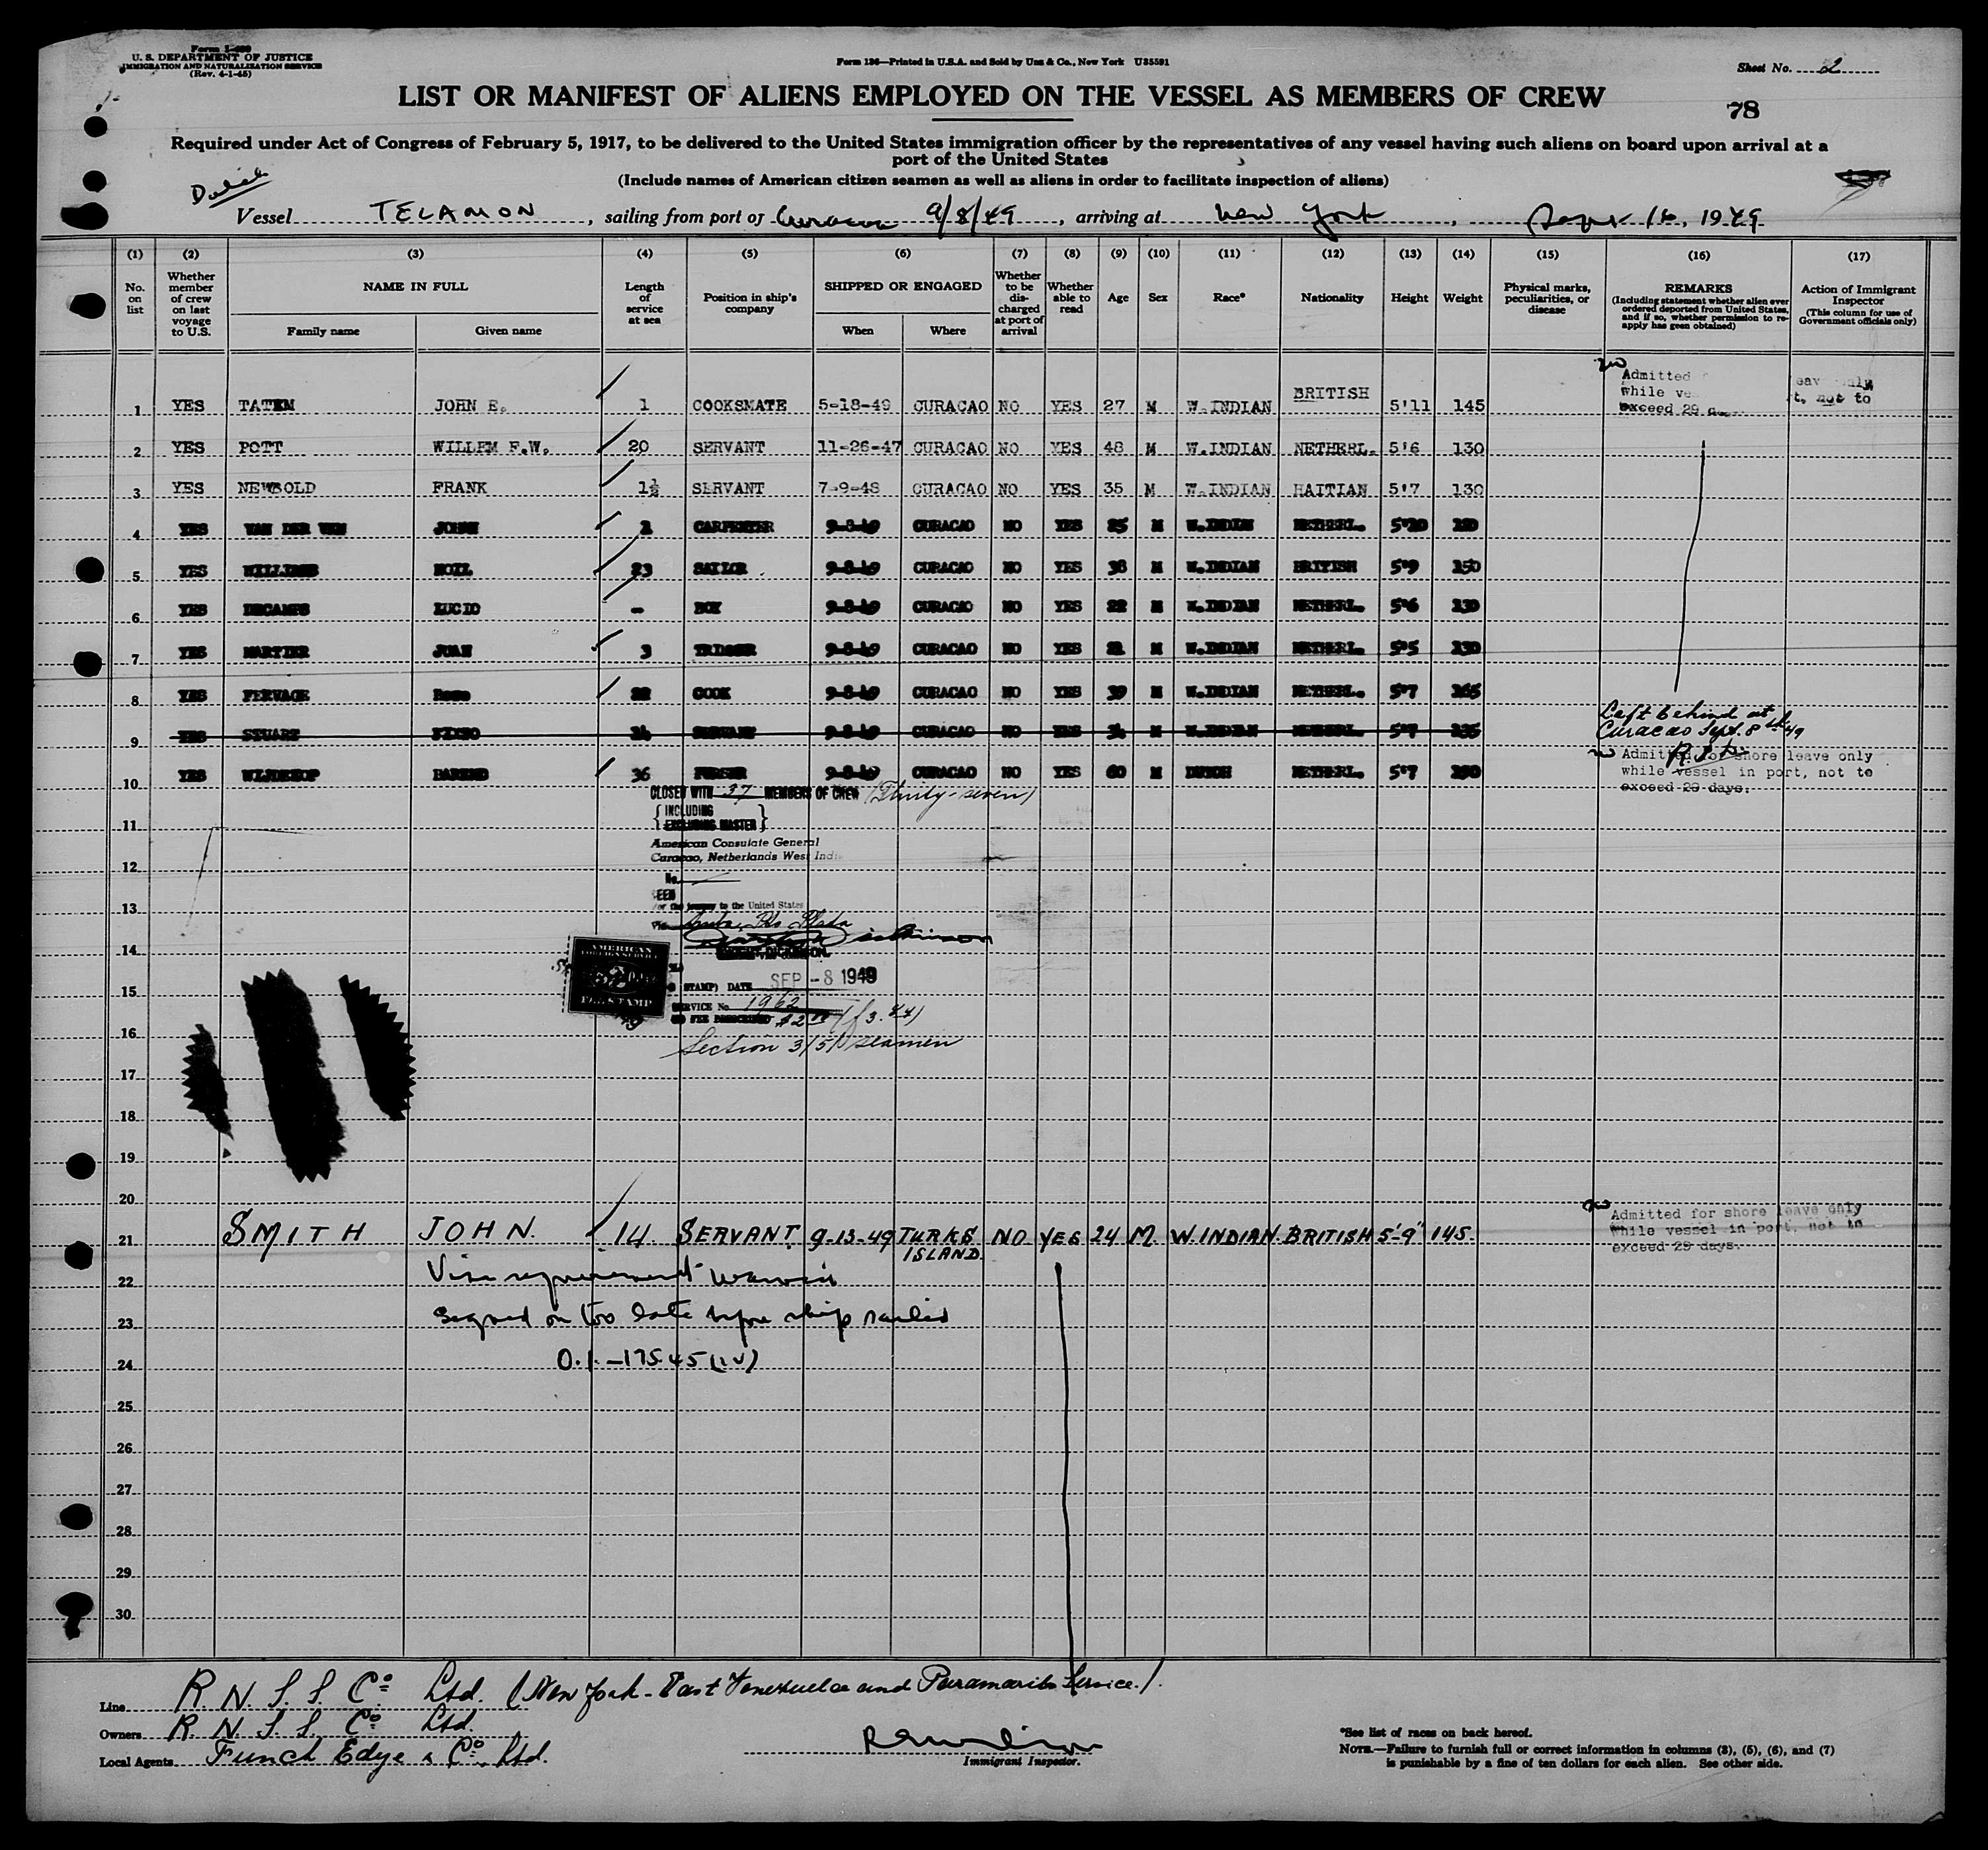 Form I-480
U. S. DEPARTMENT OF JUSTICE
IMMIGRATION AND NATURALIZATION SERVICE
(Rev. 4-1-45)
Form 136—Printed in U.S.A. and Sold by Unz & Co., New York U35591
Sheet No. 2
LIST OR MANIFEST OF ALIENS EMPLOYED ON THE VESSEL AS MEMBERS OF CREW
78
Required under Act of Congress of February 5, 1917, to be delivered to the United States immigration officer by the representatives of any vessel having such aliens on board upon arrival at a
port of the United States
(Include names of American citizen seamen as well as aliens in order to facilitate inspection of aliens)
Dutch
Vessel TELAMON, sailing from port of Curacao 9/8/49, arriving at New York, Sept 16, 1949
(1) (2) (3) (4) (5) (6) (7) (8) (9) (10) (11) (12) (13) (14) (15) (16) (17)
No. on list
Whether member of crew on last voyage to U.S.
NAME IN FULL
Family name
Given name
Length of service at sea
Position in ship's company
SHIPPED OR ENGAGED
When
Where
Whether to be discharged at port of arrival
Whether able to read
Age
Sex
Race*
Nationality
Height
Weight
Physical marks, peculiarities, or disease
REMARKS
(Including statement whether alien ever ordered deported from United States, and if so, whether permission to reapply has geen obtained)
Action of Immigrant Inspector
(This column for use of Government officials only)
1 YES TATEM JOHN E. 1 COOKSMATE 5-18-49 CURACAO NO YES 27 M W.INDIAN BRITISH 5'11 145
Admitted eave only
while ve t, not to
exceed 29
2 YES POTT WILLEM F.W. 20 SERVANT 11-26-47 CURACAO NO YES 48 M W.INDIAN NETHERL. 5'6 130
3 YES NEWBOLD FRANK 1½ SERVANT 7-9-48 CURACAO NO YES 35 M W.INDIAN HAITIAN 5'7 130
4 YES VAN DER VEN JOHAN 2 CARPENTER 9-8-49 CURACAO NO YES 25 M W.INDIAN NETHERL. 5'10
5 YES WILLIAMS NOEL 23 SAILOR 9-8-49 CURACAO NO YES 38 M W.INDIAN BRITISH 5'9 150
6 YES DECAMPS LUCIO - BOY 9-8-49 CURACAO NO YES 22 M W.INDIAN NETHERL. 5'6 130
7 YES MARTIER JUAN 3 TRIMMER 9-8-49 CURACAO NO YES M W.INDIAN NETHERL. 5'5 130
8 YES FERVAGE 22 COOK 9-8-49 CURACAO NO YES 39 M W.INDIAN NETHERL. 5'7 165
9 YES STUART SERVANT 9-8-49 CURACAO NO YES 34 M W.INDIAN NETHERL. 5'7 135
Left behind at
Curacao Sept. 8th 49
10 YES 36 PURSER 9-8-49 CURACAO NO YES 60 M DUTCH NETHERL. 5'7
Admitted for shore leave only
while vessel in port, not to
exceed 29 days.
CLOSED WITH 37 MEMBERS OF CREW (Thirty-seven)
INCLUDING
EXCLUDING MASTER
11
American Consulate General
Curacao, Netherlands West Indi
12
No.
SEEN
For the journey to the United States
13
Via Aruba, Pto Plata
14
AMERICAN
FOREIGN SERVICE
FEE STAMP
STAMP) DATE SEP -8 1949
15
SERVICE No. 1962
NO FEE PRESCRIBED $2.00 (f 3.44)
16
Section 3(5) seamen
17
18
19
20
21 SMITH JOHN. 14. SERVANT. 9-13-49 TURKS ISLAND. NO YES 24 M. W.INDIAN. BRITISH 5'-9" 145
Admitted for shore leave only
while vessel in port, not to
exceed 29 days.
22 Visa requirement waived
23 signed on too late before ship sailed
24 O.I.-175.45
25
26
27
28
29
30
Line R. N. S. S. Co Ltd. (New York - East Venezuela and Paramaribo Service.)
Owners R. N. S. S. Co Ltd.
Local Agents Funch Edye & Co. Ltd.
Immigrant Inspector.
*See list of races on back hereof.
NOTE.—Failure to furnish full or correct information in columns (3), (5), (6), and (7)
is punishable by a fine of ten dollars for each alien. See other side.